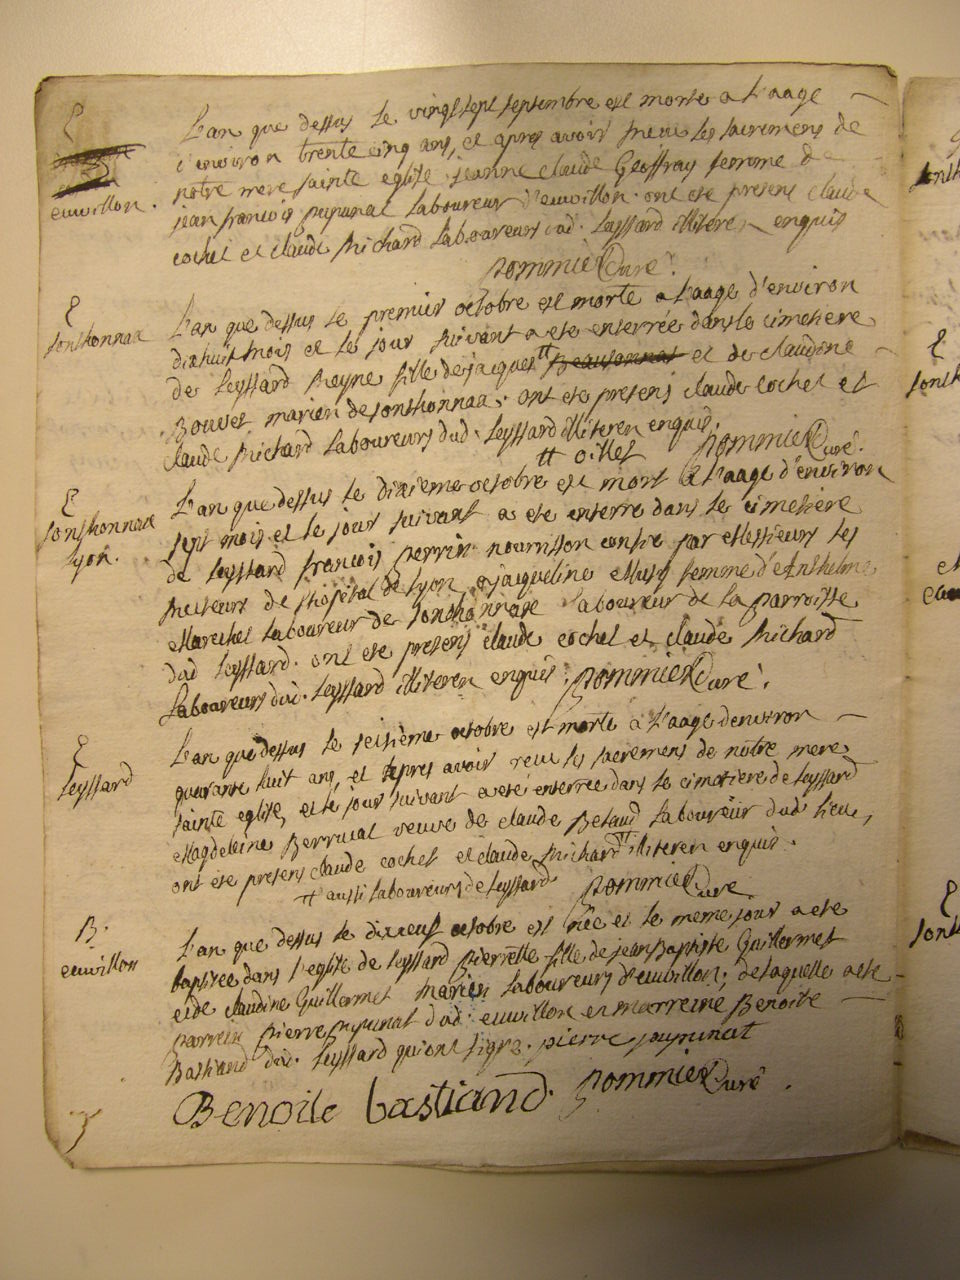 L'an que dessus le vingt sept septembre est morte a l'aage
d'environ trente cinq ans, et apres avoir receu les sacremens de
notre mere sainte eglise jeanne claude Geoffray femme de
euvillon.
jean francois pupunat laboureur d'euvillon. ont ete presens claude
cochet et claude Michard laboureurs dud. Leyssard illiteren enquis
pommier Curé.
E
Sonthonnax
L'an que dessus le premier octobre est morte a l'aage d'environ
dixhuit mois et le jour suivant a ete enterrée dans le cimetiere
de Leyssard Reyne fille de jacques tt et de claudine
Bouvet mariés de Sonthonnax. ont ete presens claude cochet et
claude Michard laboureurs dud. Leyssard illiteren enquis.
tt oillet pommier Curé.
E
Sonthonnax
Lyon.
L'an que dessus le dixieme octobre est mort a l'aage d'environ
sept mois et le jour suivant a ete enterré dans le cimetiere
de Leyssard francois perrin nourrisson confié par Messieurs les
Recteurs de l'hopital de Lyon, a jaqueline femme d'Anthelme
Marechal laboureur de Sonthonnaxe laboureur de la parroisse
dud Leyssard. ont ete presens claude cochet et claude Michard
laboureurs dud. Leyssard illiteren enquis. pommier Curé.
E
Leyssard
L'an que dessus le seisième octobre est morte a l'aage denviron
quarante huit ans, et apres avoir receu les sacremens de nôtre mere
sainte eglise, et le jour suivant a eté enterrée dans le cimetiere de Leyssard
Magdeleine veuve de claude laboureur dud lieu,
ont ete presens claude cochet et claude Michard tt illiteren enquis.
tt aussi laboureurs de Leyssard pommier Curé
B.
euvillon
L'an que dessus le dixneuf octobre est née et le meme jour a ete
baptisée dans l'eglise de Leyssard pierrette fille de jean Baptiste Guillermet
et de claudine Guillermet mariés laboureurs d'euvillon; de laquelle a ete
parrein pierre pupunat dud. euvillon et marreine Benoite
Bastiand dud. Leyssard qui ont signé. pierre pupunat
Benoite bastiand. pommier Curé.